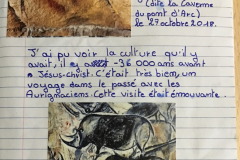 (dite la Caverne
du pont d'Arc)
le 27 octobre 2018.
J'ai pu voir la culture qu'il y
avait, il y a -36 000 ans avant
Jésus-christ. C'était très bien, un
voyage dans le passé avec les
Aurignaciens. Cette visite était émouvante.